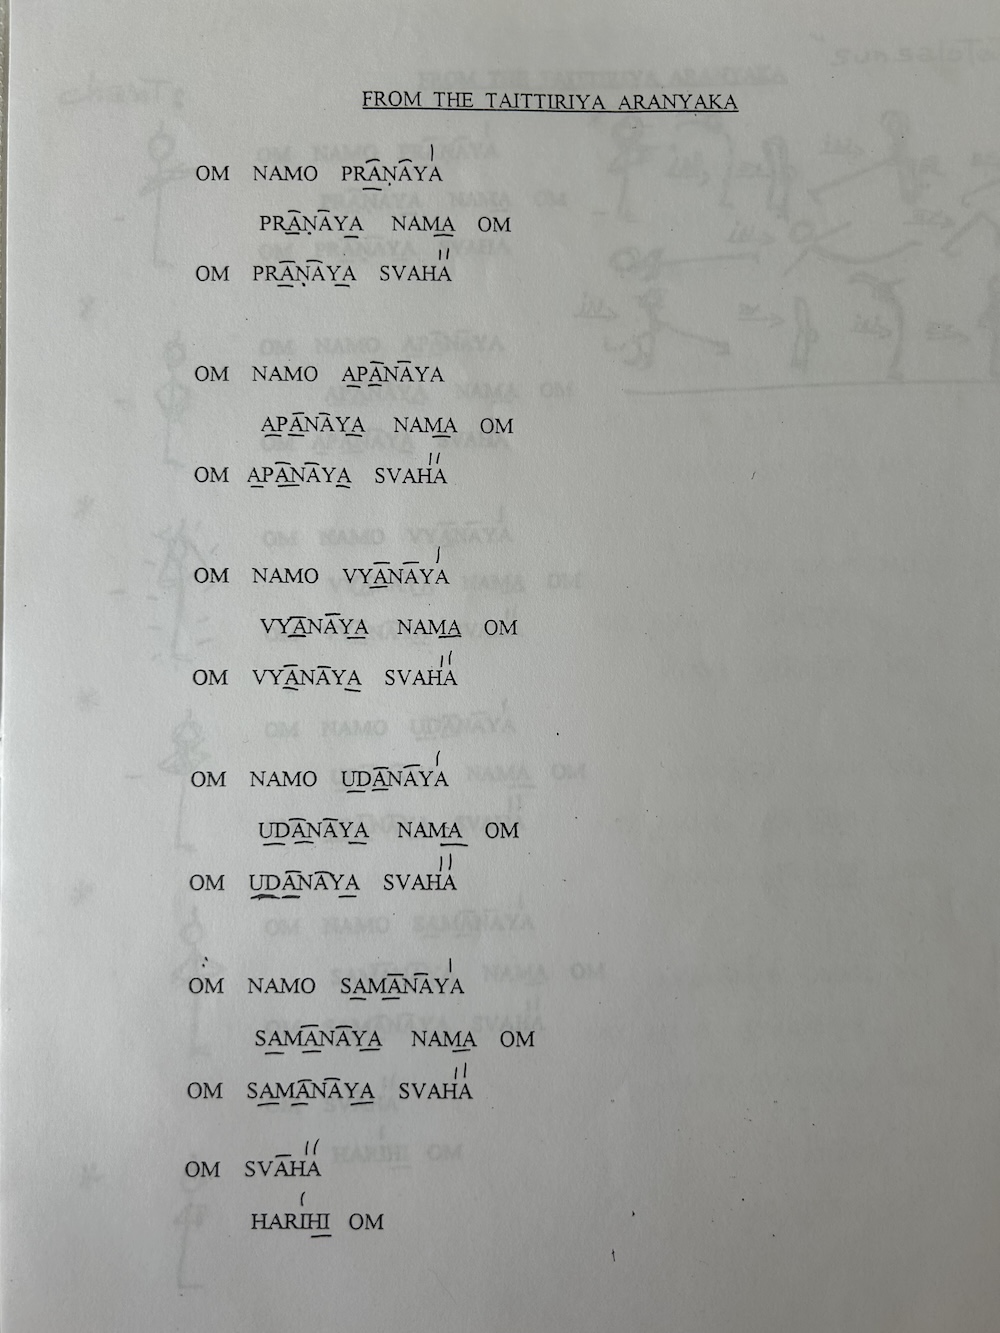 FROM THE TAITTIRIYA ARANYAKA
OM NAMO PRĀṆĀYA
PRĀṆĀYA NAMA OM
OM PRĀṆĀYA SVAHA
OM NAMO APĀNĀYA
APĀNĀYA NAMA OM
OM APĀNĀYA SVAHA
OM NAMO VYĀNĀYA
VYĀNĀYA NAMA OM
OM VYĀNĀYA SVAHA
OM NAMO UDĀNĀYA
UDĀNĀYA NAMA OM
OM UDĀNĀYA SVAHA
OM NAMO SAMĀNĀYA
SAMĀNĀYA NAMA OM
OM SAMĀNĀYA SVAHA
OM SVĀHA
HARIHI OM